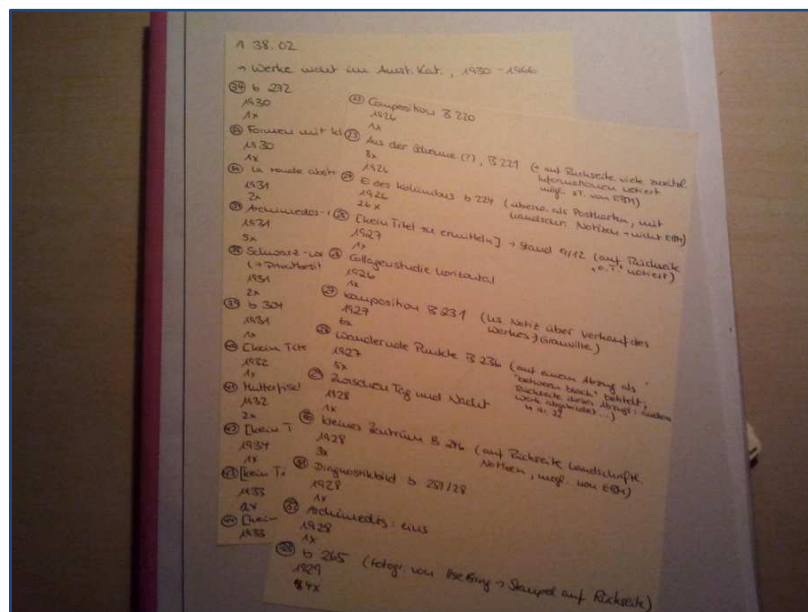 1 38.02
→ Werke nicht im Ausst. Kat., 1930 - 1966
34 b 272
1930
1x
35 Formen mit
1930
1x
36 La ronde
1931
2x
37 Archimedes-
1931
5x
38 Schwarz-
1931
2x
39 b 304
1931
1x
40 [kein Tite
1932
1x
41
1932
2x
42 [kein T
1934
1x
43 [kein Ti
1933
2x
44 [kein
1933
22 Composition B 220
1926
1x
23 Aus der (?), B 221 (→ auf Rückseite viele zusätzl.
8x Informationen notiert
1926 mögl. von EBM)
24 E des Kolumbus b 224 (überw. als Postkarten, mit
1926 handschr. Notizen → nicht EBM)
26x
25 [kein Titel zu ermitteln] → Stand 9/12 (auf Rückseite
1927 "o.T." notiert)
1x
26 Collagenstudie horizontal
1926
1x
27 Komposition B 231 (hs. Notiz über Verkauf des
1927 Werkes) (Granville)
6x
28 Wandernde Punkte B 236 (auf einem Abzug als
1927 "between beach" betitelt,
5x Rückseite dieses Abzugs: anderes
Werk abgebildet ...)
29 Zwischen Tag und Nacht
1928
1x
30 kleines Zentrum B 246 (auf Rückseite handschriftl.
1928 Notizen, mögl. von EBM)
3x
31 Diagnostikbild b 251/28
1928
1x
32 Archimedes: eins
1928
1x
33 b 265 (Fotogr. von Ilse Bing → Stempel auf Rückseite)
1929
4x